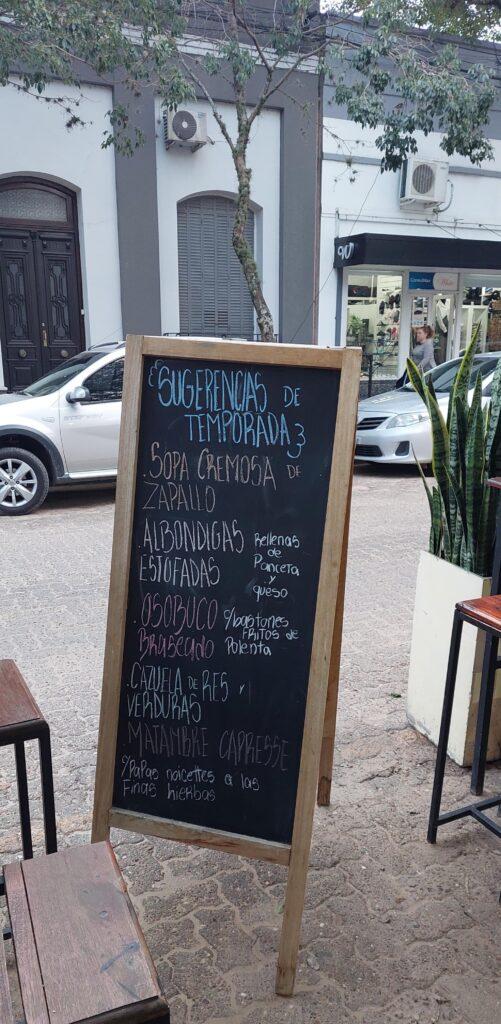 SUGERENCIAS DE
TEMPORADA
.SOPA CREMOSA DE
ZAPALLO
.ALBONDIGAS Rellenas
ESTOFADAS de
Panceta
y
queso
.OSOBUCO c/bastones
Braseado FRITOS de
Polenta
.CAZUELA DE RES y
VERDURAS
.MATAMBRE CAPRESSE
c/PaPas noicettes a las
Finas hierbas